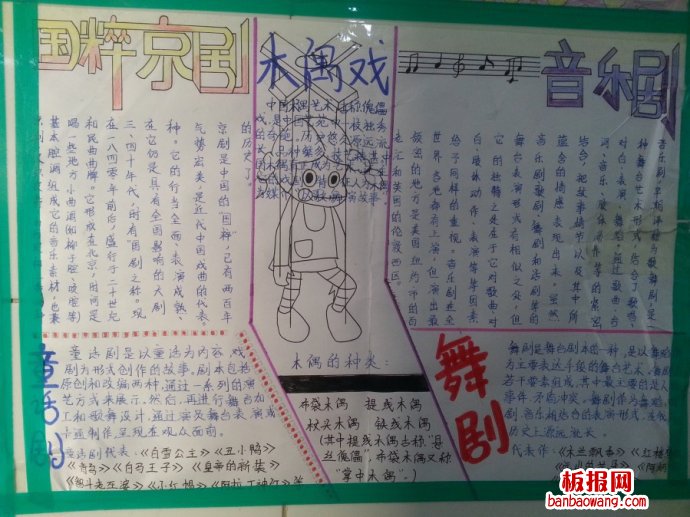 国粹京剧
京剧是中国的“国粹”，已有两百年
的历史了。
气势宏美，是近代中国戏曲的代表。
种。它的行当全面、表演成熟、
在它仍是具有全国影响的大剧
三、四十年代，时有“国剧”之称。现
在一八四零年前后，盛行于二十世纪
和民曲曲牌。它形成在北京，时间是
唱一些地方小曲调
基本腔调组成它的音乐素材，也兼
木偶戏
木偶的种类：
布袋木偶 提线木偶
杖头木偶 铁线木偶
(其中提线木偶古称“悬
丝傀儡”，布袋木偶又称
“掌中木偶”。)
音乐剧
音乐剧，早期译称为歌舞剧，是一
种舞台艺术形式，结合了歌唱、
对白、表演、舞蹈。通过歌曲、台
词、音乐、肢体动作等的紧密
结合，把故事情节以及其中所
蕴含的情感表现出来。虽然
音乐剧和歌剧、舞剧和话剧等的
舞台表演形式有相似之处，但
它的独特之处在于它对歌曲、对
白、肢体动作、表演等等因素
给予同样的重视。音乐剧在全
世界各地都有上演，但演出最
频密的地方是美国纽约市的百
老汇和英国的伦敦西区。
童话剧
童话剧是以童话为内容，戏
剧为形式创作的故事。剧本包括
原创和改编两种，通过一系列的演
艺方式来展示。然后，再进行舞台加
工和歌舞设计，通过演员舞台表演或
卡通制作呈现在观众面前。
童话剧代表：《白雪公主》《丑小鸭》
《青鸟》《白马王子》《皇帝的新装》
《小红帽》
舞剧
舞剧是舞台剧本的一种，是以舞蹈
为主要表达手段的舞台艺术，舞剧
若干要素组成，其中最主要的是人
事件、矛盾冲突。
剧、音乐相结合的表演形式，在我
历史上源远流长。
代表作：《木兰飘香》《红楼
板报网
banbaowang.com